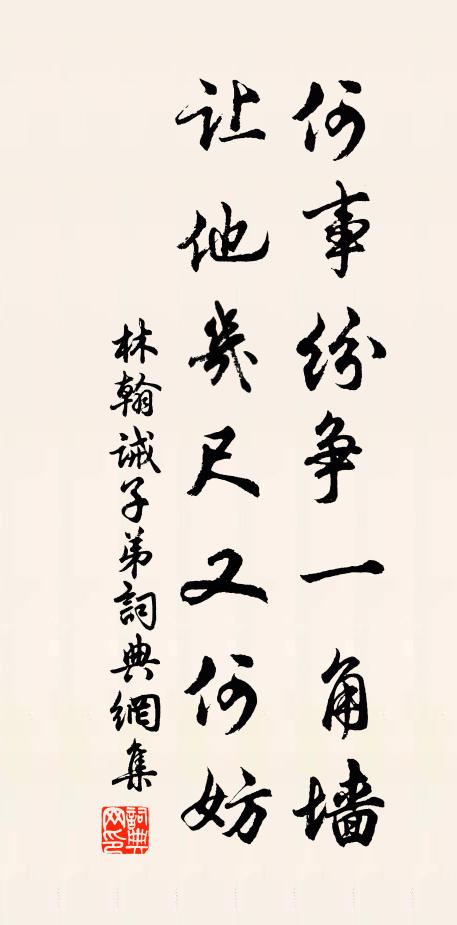 何事纷争一角墙
让他幾尺又何妨
林翰诫子弟詞典網集
詞典
网印